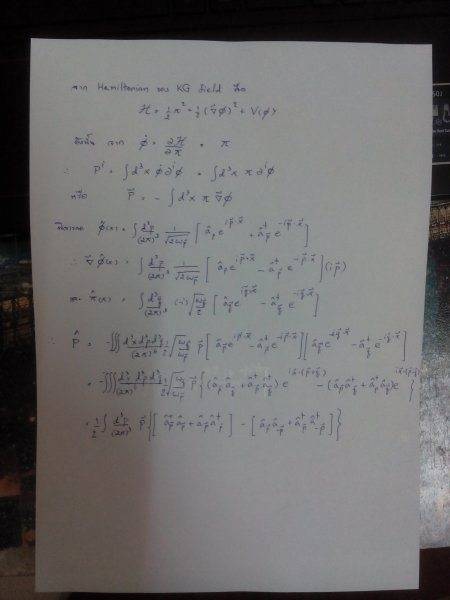 จาก Hamiltonian ของ KG field คือ
ℋ = ½ π² + ½ (∇⃗φ)² + V(φ)
ดังนั้น จาก φ̇ = ∂ℋ/∂π = π
∴ Pⁱ = ∫d³x φ̇ ∂ⁱφ = ∫d³x π ∂ⁱφ
หรือ P⃗ = - ∫d³x π ∇⃗φ
φ̂(x) = ∫ d³p/(2π)³ 1/√(2ω_p) [ â_p e^{ip⃗·x⃗} + â†_p e^{-ip⃗·x⃗} ]
∴ ∇⃗φ̂(x) = ∫ d³p/(2π)³ 1/√(2ω_p) [ â_p e^{ip⃗·x⃗} - â†_p e^{-ip⃗·x⃗} ] (ip⃗)
และ π̂(x) = ∫ d³q/(2π)³ (-i) √(ω_q/2) [ â_q e^{iq⃗·x⃗} - â†_q e^{-iq⃗·x⃗} ]
∴ P̂ = -∭ d³x d³p d³q/(2π)⁶ ½ √(ω_q/ω_p) p⃗ [ â_p e^{ip⃗·x⃗} - â†_p e^{-ip⃗·x⃗} ][ â_q e^{iq⃗·x⃗} - â†_q e^{-iq⃗·x⃗} ]
= -∭ d³x d³p d³q/(2π)⁶ ½ √(ω_q/ω_p) p⃗ { (â_p â_q + â†_p â†_q) e^{ix⃗·(p⃗+q⃗)} - (â_p â†_q + â†_p â_q) e^{ix⃗·(p⃗-q⃗)} }
= ½ ∫ d³p/(2π)³ p⃗ { [ â†_p â_p + â_p â†_p ] - [ â_p â_{-p} + â†_p â†_{-p} ] }